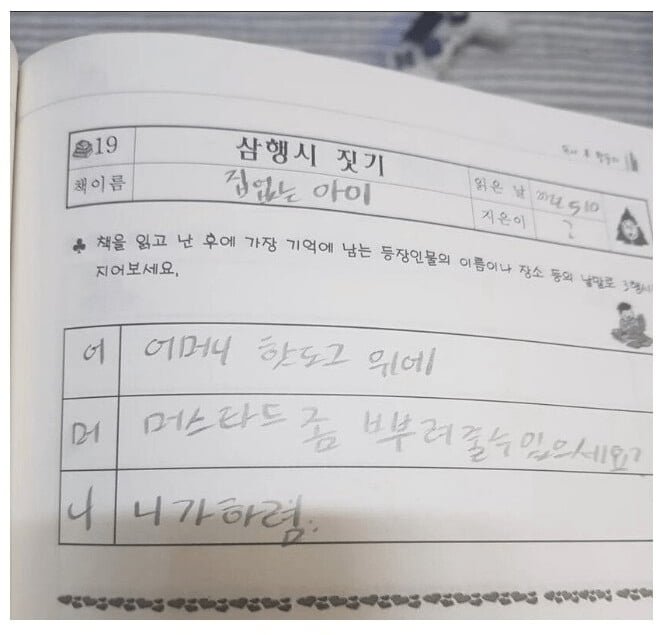 19
삼행시 짓기
책이름
집없는 아이
읽은 날
5 10
지은이
?
♣ 책을 읽고 난 후에 가장 기억에 남는 등장인물의 이름이나 장소 등의 낱말로 3행시
지어보세요.
어 어머니 핫도그 위에
머 머스타드 좀 뿌부려줄수 있으세요?
니 니가하렴.